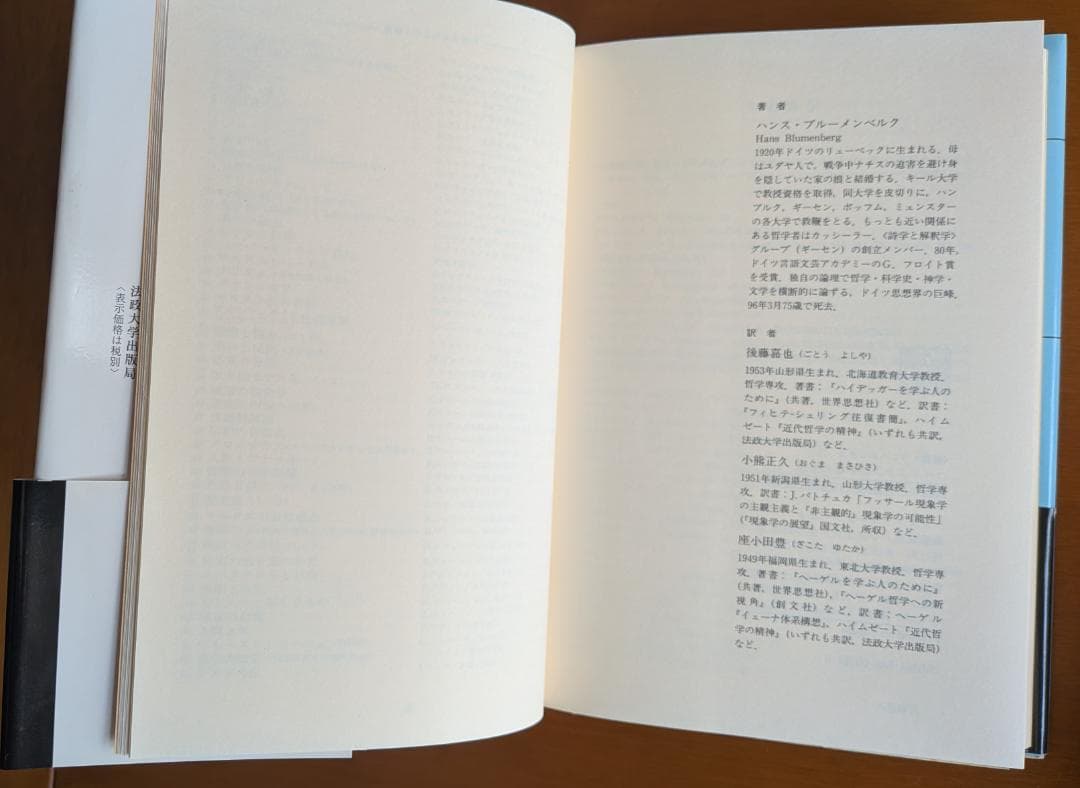 法政大学出版局
〈表示価格は税別〉
著 者
ハンス・ブルーメンベルク
Hans Blumenberg
1920年ドイツのリューベックに生まれる．母
はユダヤ人で，戦争中ナチスの迫害を避け身
を隠していた家の娘と結婚する．キール大学
で教授資格を取得，同大学を皮切りに，ハン
ブルク，ギーセン，ボッフム，ミュンスター
の各大学で教鞭をとる．もっとも近い関係に
ある哲学者はカッシーラー．〈詩学と解釈学〉
グループ（ギーセン）の創立メンバー．80年，
ドイツ言語文芸アカデミーのG．フロイト賞
を受賞．独自の論理で哲学・科学史・神学・
文学を横断的に論ずる，ドイツ思想界の巨峰．
96年3月75歳で死去．
訳 者
後藤嘉也（ごとう よしや）
1953年山形県生まれ．北海道教育大学教授．
哲学専攻．著書：『ハイデッガーを学ぶ人の
ために』（共著，世界思想社）など．訳書：
『フィヒテ-シェリング往復書簡』，ハイム
ゼート『近代哲学の精神』（いずれも共訳，
法政大学出版局）など．
小熊正久（おぐま まさひさ）
1951年新潟県生まれ．山形大学教授．哲学専
攻．訳書：J.パトチュカ「フッサール現象学
の主観主義と『非主観的』現象学の可能性」
（『現象学の展望』国文社，所収）など．
座小田豊（ざこた ゆたか）
1949年福岡県生まれ．東北大学教授．哲学専
攻．著書：『ヘーゲルを学ぶ人のために』
（共著，世界思想社），『ヘーゲル哲学への新
視角』（創文社）など．訳書：ヘーゲル
『イェーナ体系構想』，ハイムゼート『近代哲
学の精神』（いずれも共訳，法政大学出版局）
など．